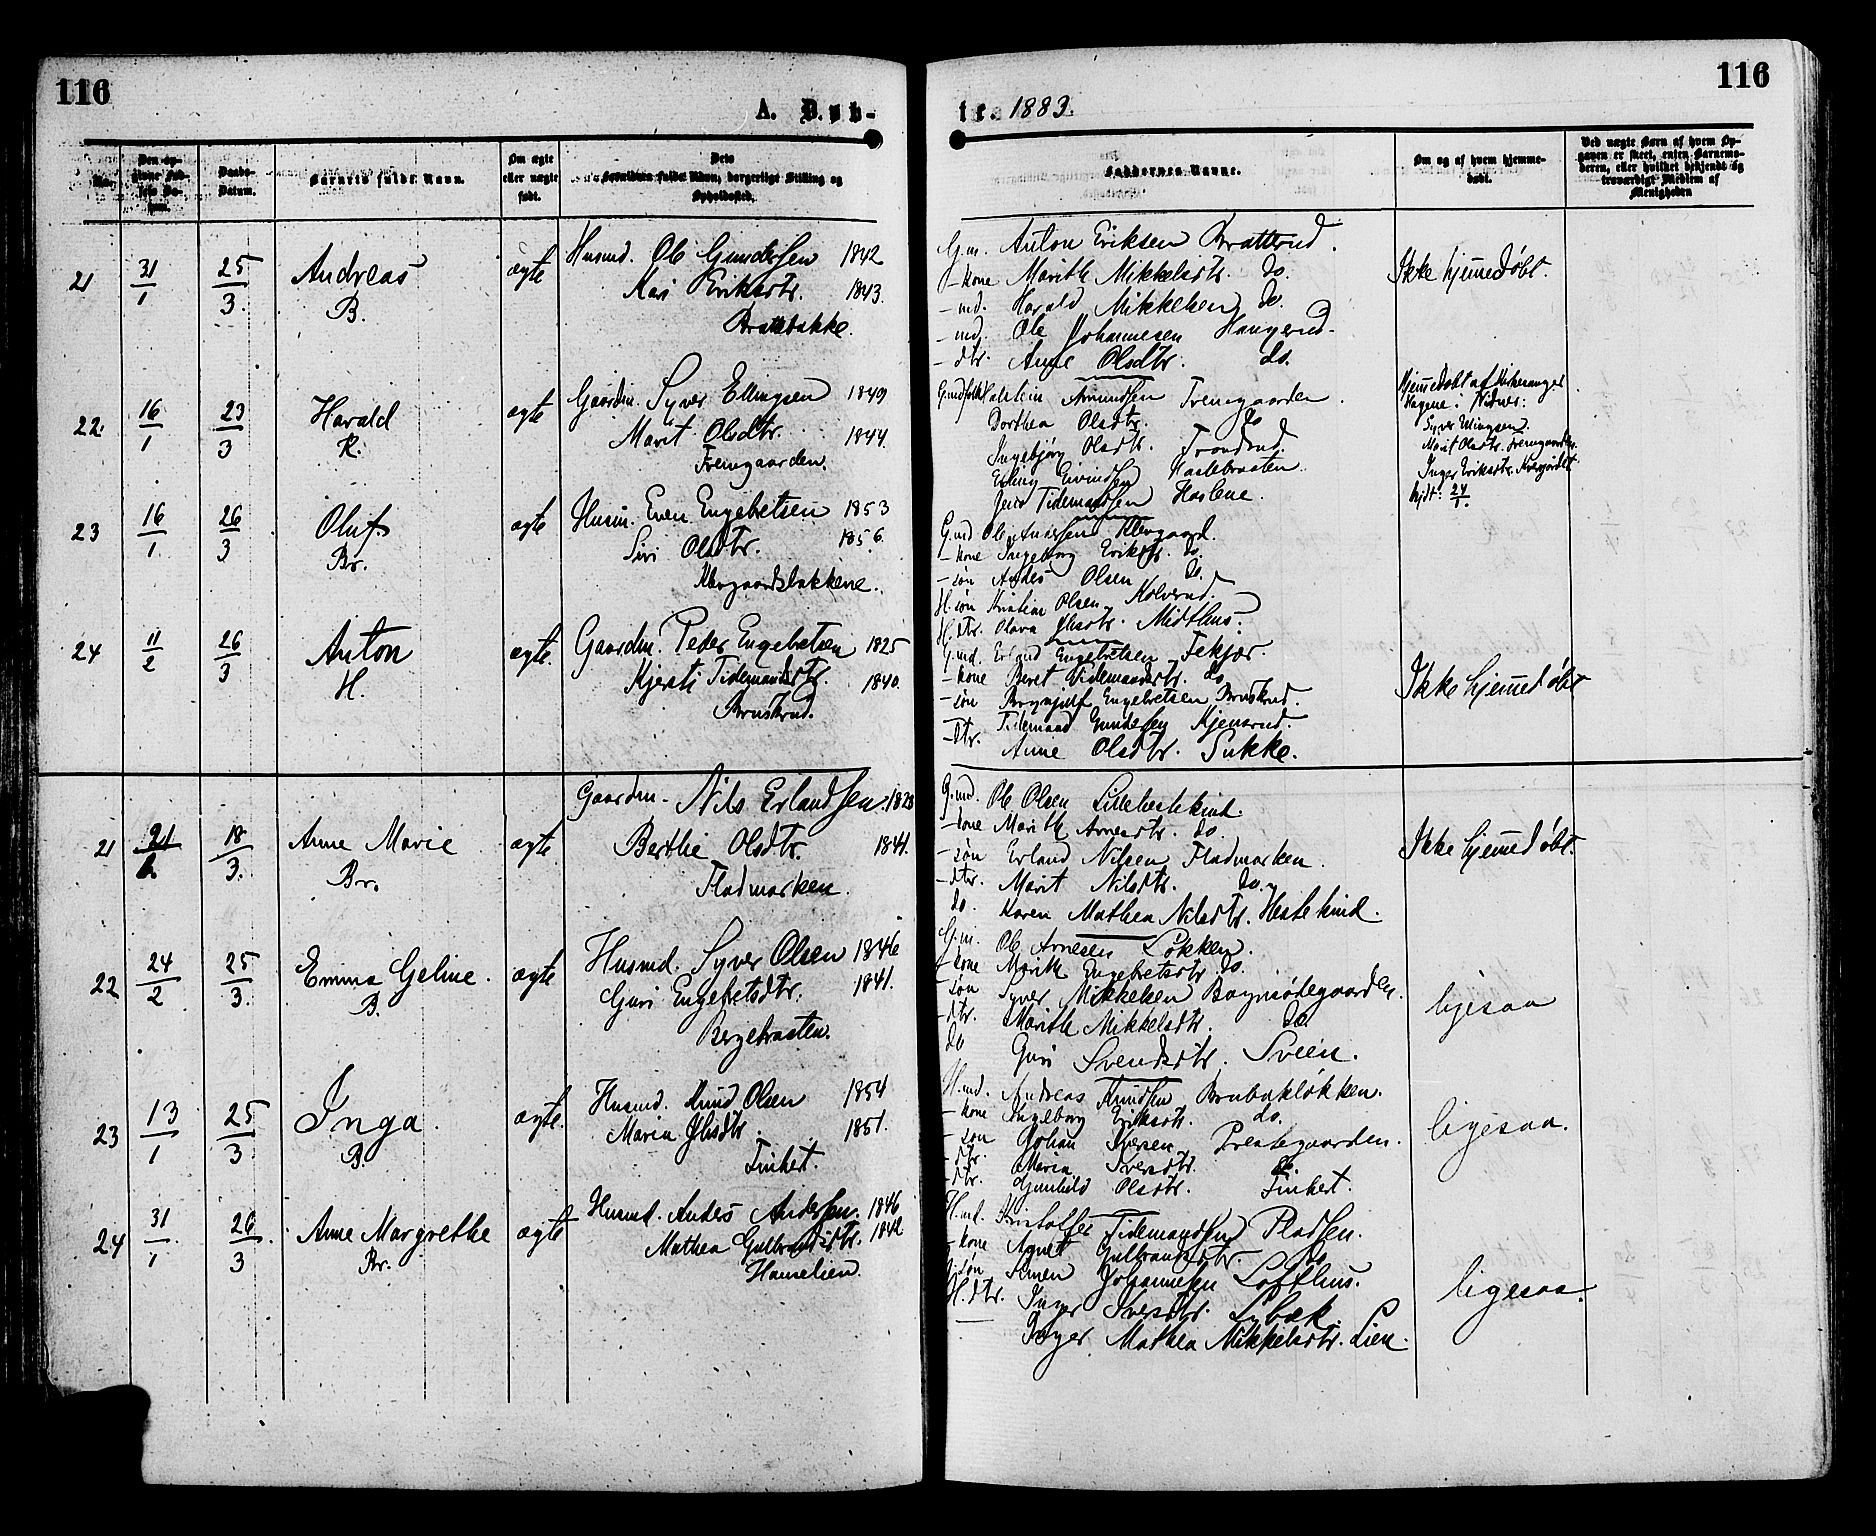 116
A. Døb-
te. 1883.
116
No.
Barnets fulde Navn.
Om ægte eller uægte født.
Faddernes Navne.
Om og af hvem hjemmedøbt.
21 31/1 25/3 Andreas B. ægte
Husmd. Ole Gundersen 1842
Kari Eriksdtr. 1843.
Brattebakke.
G.m. Anton Eriksen Bratterud.
- kone Marith Mikkelsdtr. do.
- md. Harald Mikkelsen do.
- md. Ole Johannesen Haugerud.
- dtr. Anne Olsdtr. do.
Ikke hjemmedøbt.
22. 16/1 23/3 Harald R. ægte
Gaardm. Syver Ellingsen 1849
Marit Olsdtr. 1844.
Fremgaarden.
Amundsen Fremgaarden.
Dorthea Olsdtr. do
Ingebjørg Olsdtr. Trondrud.
Erling Eivindsen Haslebraaten.
Jens Tidemandsen Haslene.
Hjemmedøbt af Kirkesanger
Hagene i Vidner:
Syver Ellingsen.
Marit Olsdtr. Fremgaarden.
Inger Eriksdtr.
hjdt: 24/1.
23 16/1 26/3 Oluf Br. ægte
Husm. Even Engebretsen 1853
Siri Olsdtr. 1856.
G.md Ole Andersen
- kone Ingeborg Eriksdtr. do.
- søn Anders Olsen do.
H. søn Kristian Olsen Kolverud.
H. dtr. Olava Olsdtr. Midthus.
24 11/2 26/3 Anton H. ægte.
Gaardm. Peder Engebretsen 1825
Kjersti Tidemandsdtr. 1840.
Bruskrud.
G.md. Erland Engebretsen Tekjær.
- kone Beret Tidemandsdtr. do
- søn Engebretsen Bruskrud.
Tidemand Gundersen Kjensrud.
- dtr. Anne Olsdtr. Sukke.
Ikke hjemmedøbt
21 21/2. 18/3. Anne Marie Br. ægte
Gaardm. Nils Erlandsen. 1828
Berthe Olsdtr. 1841.
Fladmarken.
G.md. Ole Olsen Lillehestekind.
- kone Marith Arnesdtr. do.
- søn Erland Nilsen Fladmarken.
- dtr. Marit Nilsdtr. do.
do. Karen Mathea Nilsdtr. Hestekind.
Ikke hjemmedøbt.
22 24/2 25/3. Emma Geline. B. ægte
Husmd. Syver Olsen 1846
Guri Engebretsdtr. 1841.
Bergebraaten.
G.m. Ole Arnesen Løkken.
- kone Marith Engebretsdtr. do.
- søn Syver Mikkelsen Bagnsødegaarden.
- dtr. Marith Mikkelsdtr. do.
do Guri Svendsdtr. Sveen.
ligesaa
23 13/1 25/3 Inga. B. ægte.
Husmd. Amund Olsen 1854
Maria Olsdtr. 1851.
Finhert.
H.md. Andreas Amundsen Brubakløkken.
- kone Ingeborg Eriksdtr. do.
- søn Johan Iversen Præstegaarden.
- dtr. Maria Iversdtr. do
- dtr. Gunhild Olsdtr. Finhert.
ligesaa.
24 31/1 26/3 Anne Margrethe Br. ægte
Husmd. Anders Andersen. 1846
Mathea Gulbrandsdtr. 1842
Hamelien.
H.md. Kristoffer Tidemandsen Pladsen.
- kone Agnet Gulbrandsdtr. do
G. søn Simen Johannesen Lofthus.
H. dtr. Inger Iversdtr. Libæk.
— Inger Mathea Mikkelsdtr. Lien.
ligesaa.